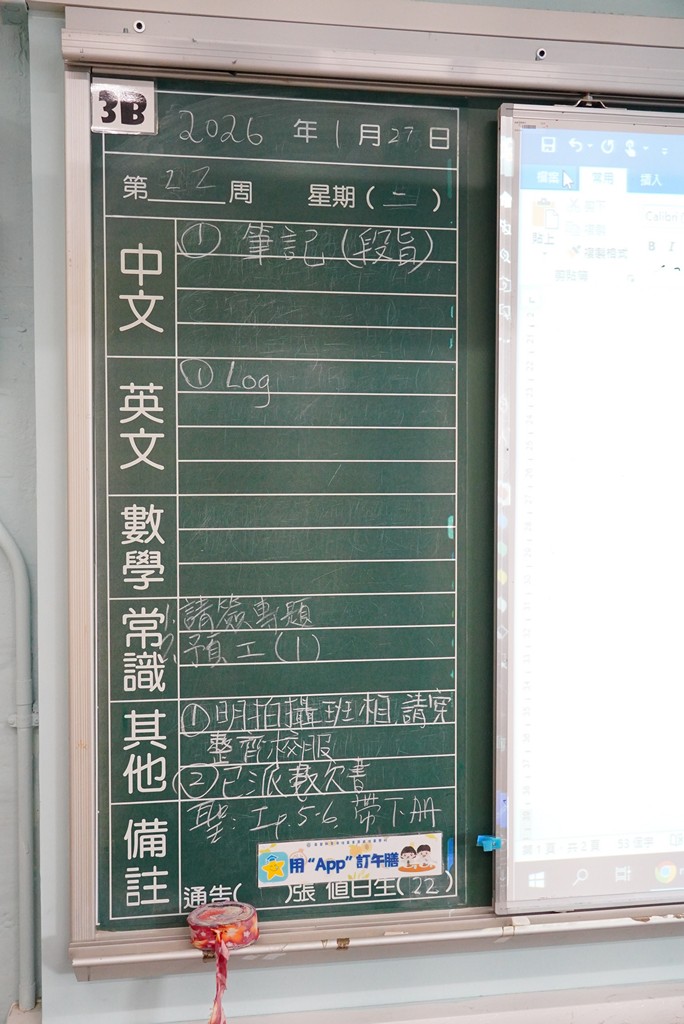 3B
2026 年 1 月 27 日
第 22 周 星期 ( 二 )
中文
① 筆記 (段旨)
英文
① Log
數學
常識
1. 請簽專題
2. 預工 (1)
其他
① 明拍攝班相,請穿
整齊校服
② 已派欠書
備註
聖: 工p.5-6, 帶下冊
用 “App” 訂午膳
通告( )張 值日生( 22 )
檔案 常用 插入
貼上
複製格式
剪貼簿
Calibri
B I